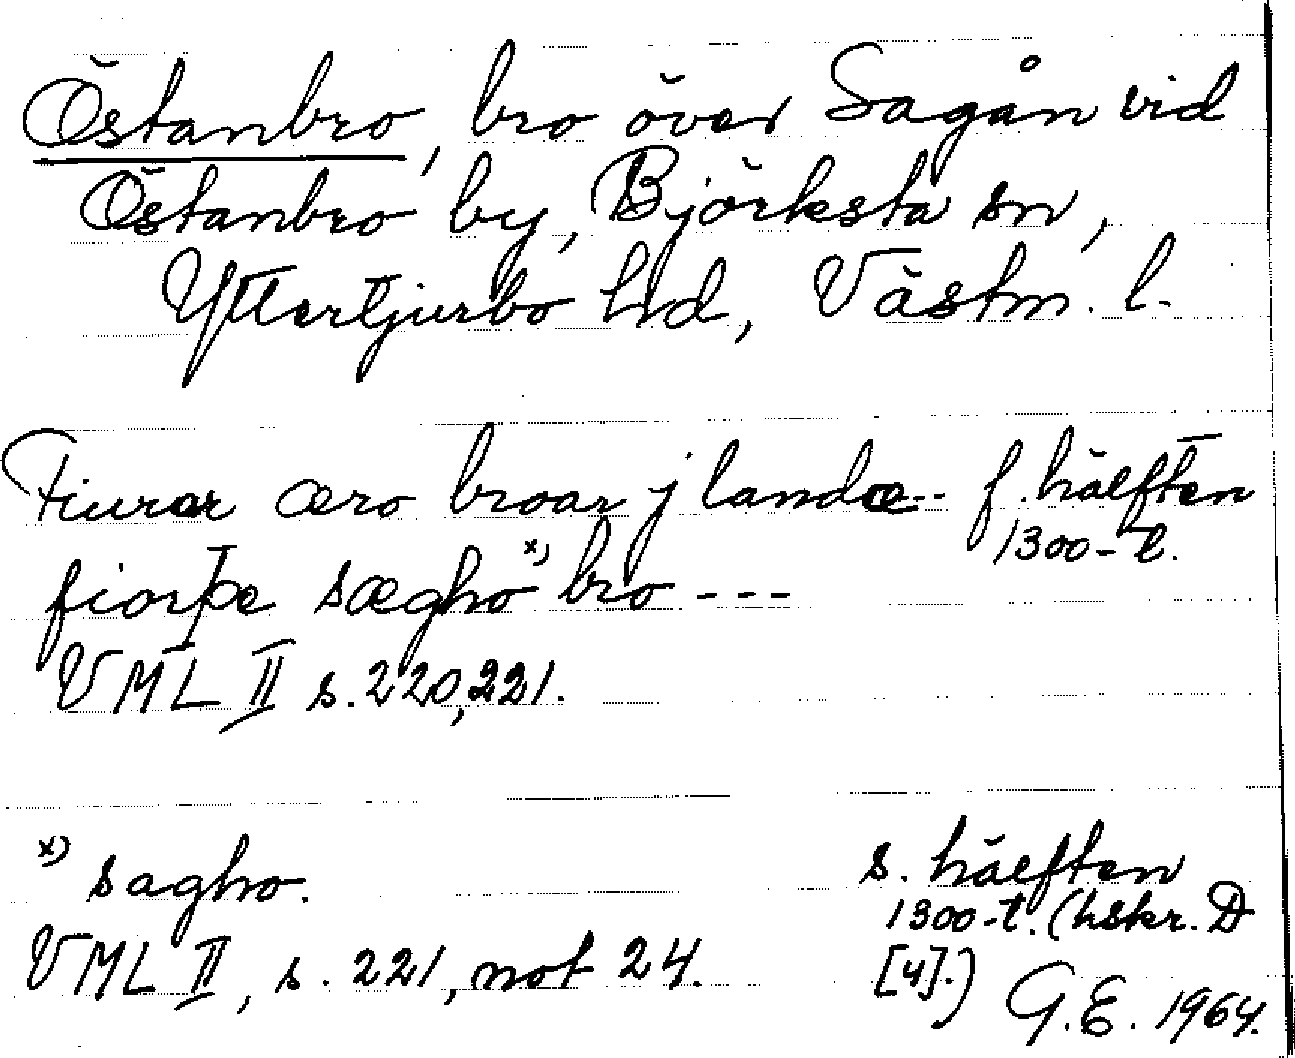 Östanbro, bro över Sagån vid
Östanbro by, Björksta sn,
Yttertjurbo hd, Västm. l.
Fiurar æro broar j landæ-- f. hälften
1300-t.
fiorþe sægho x) bro ---
VML II s. 220, 221.
x) sagho.
s. hälften
1300-t. (hskr. D
VML II, s. 221, not 24.
[4].)
G.E. 1964.